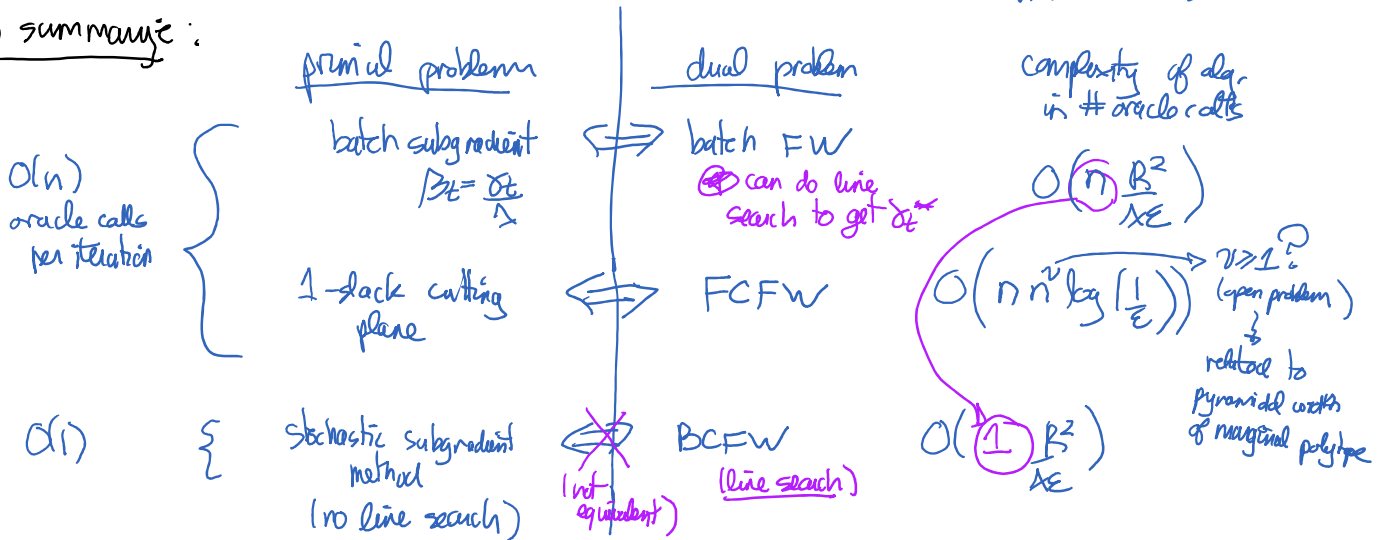 summarize:
primal problem
dual problem
complexity of alg.
in # oracle calls
O(n)
oracle calls
per iteration
batch subgradient
β_t = γ_t/λ
⇔
batch FW
can do line
search to get γ_t*
O(n R²/λε)
1-slack cutting
plane
⇔
FCFW
O(n n^ν log(1/ε))
ν ≥ 1?
(open problem)
related to
pyramidal width
of marginal polytope
O(1)
{
stochastic subgradient
method
(no line search)
⇔
(not
equivalent)
BCFW
(line search)
O(1 R²/λε)